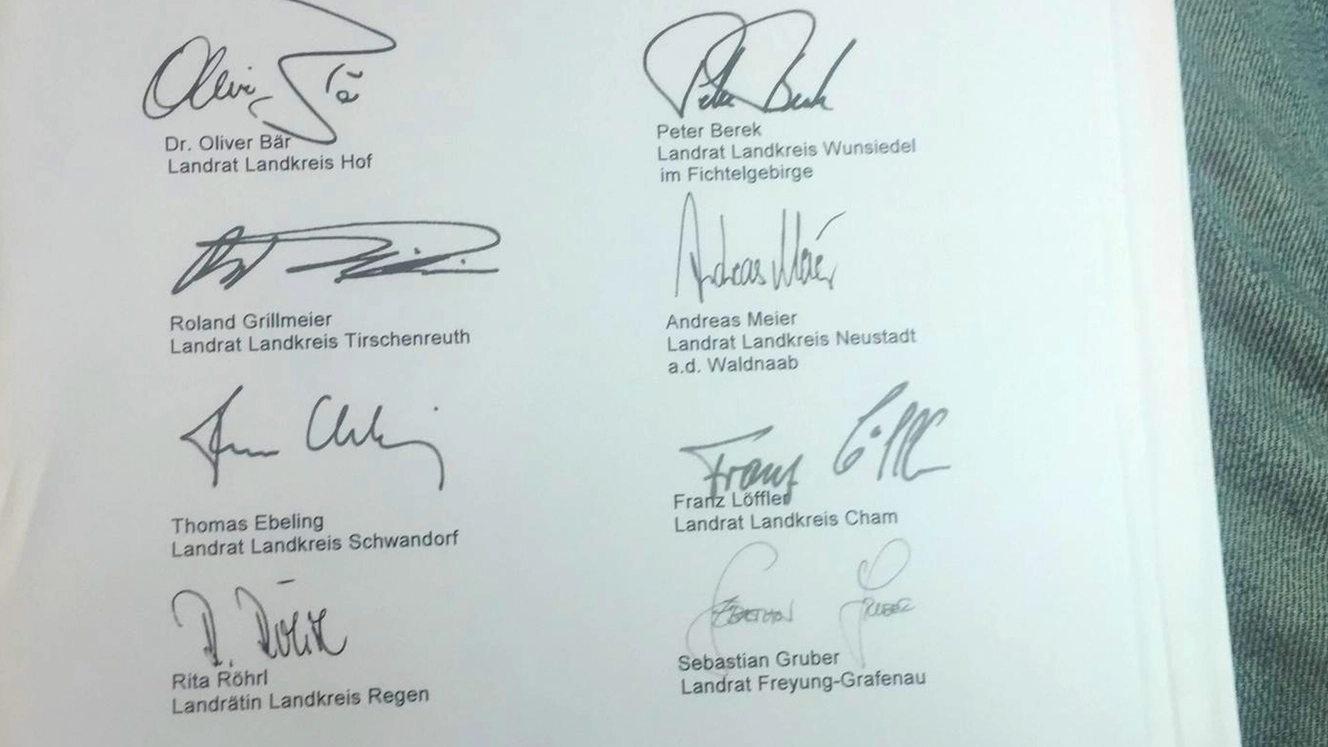 Oliver Bär
Dr. Oliver Bär
Landrat Landkreis Hof
Peter Berek
Peter Berek
Landrat Landkreis Wunsiedel
im Fichtelgebirge
Roland Grillmeier
Landrat Landkreis Tirschenreuth
Andreas Meier
Andreas Meier
Landrat Landkreis Neustadt
a.d. Waldnaab
Thomas Ebeling
Landrat Landkreis Schwandorf
Franz Löffler
Franz Löffler
Landrat Landkreis Cham
R. Röhrl
Rita Röhrl
Landrätin Landkreis Regen
Sebastian Gruber
Sebastian Gruber
Landrat Freyung-Grafenau